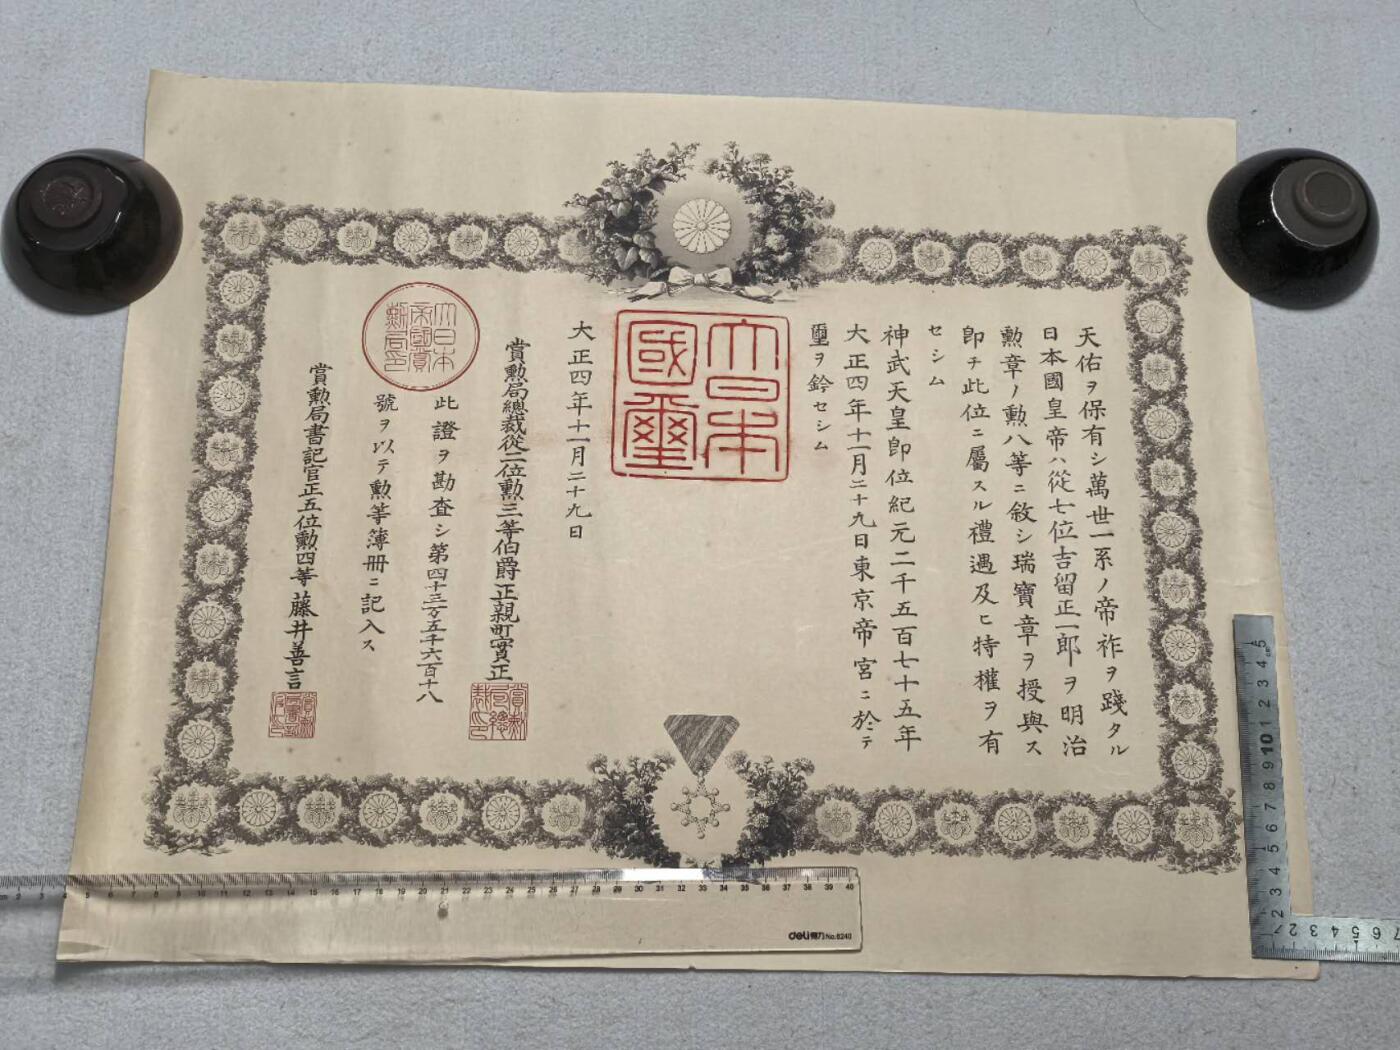 天佑ヲ保有シ萬世一系ノ帝祚ヲ踐タル
日本國皇帝ハ從七位吉留正一郎ヲ明治
勲章ノ勲八等ニ敘シ瑞寶章ヲ授與ス
卽チ此位ニ屬スル禮遇及ヒ特權ヲ有
セシム
神武天皇卽位紀元二千五百七十五年
大正四年十一月二十九日東京帝宮ニ於テ
璽ヲ鈐セシム
大日本
國璽
大正四年十一月二十九日
賞勲局總裁從二位勲三等伯爵正親町實正
賞勲局總裁印
大日本
帝國賞
勲局印
此證ヲ勘査シ第四十三万五千六百十八
號ヲ以テ勲等簿册ニ記入ス
賞勲局書記官正五位勲四等藤井善言
deli 得力 No.6240